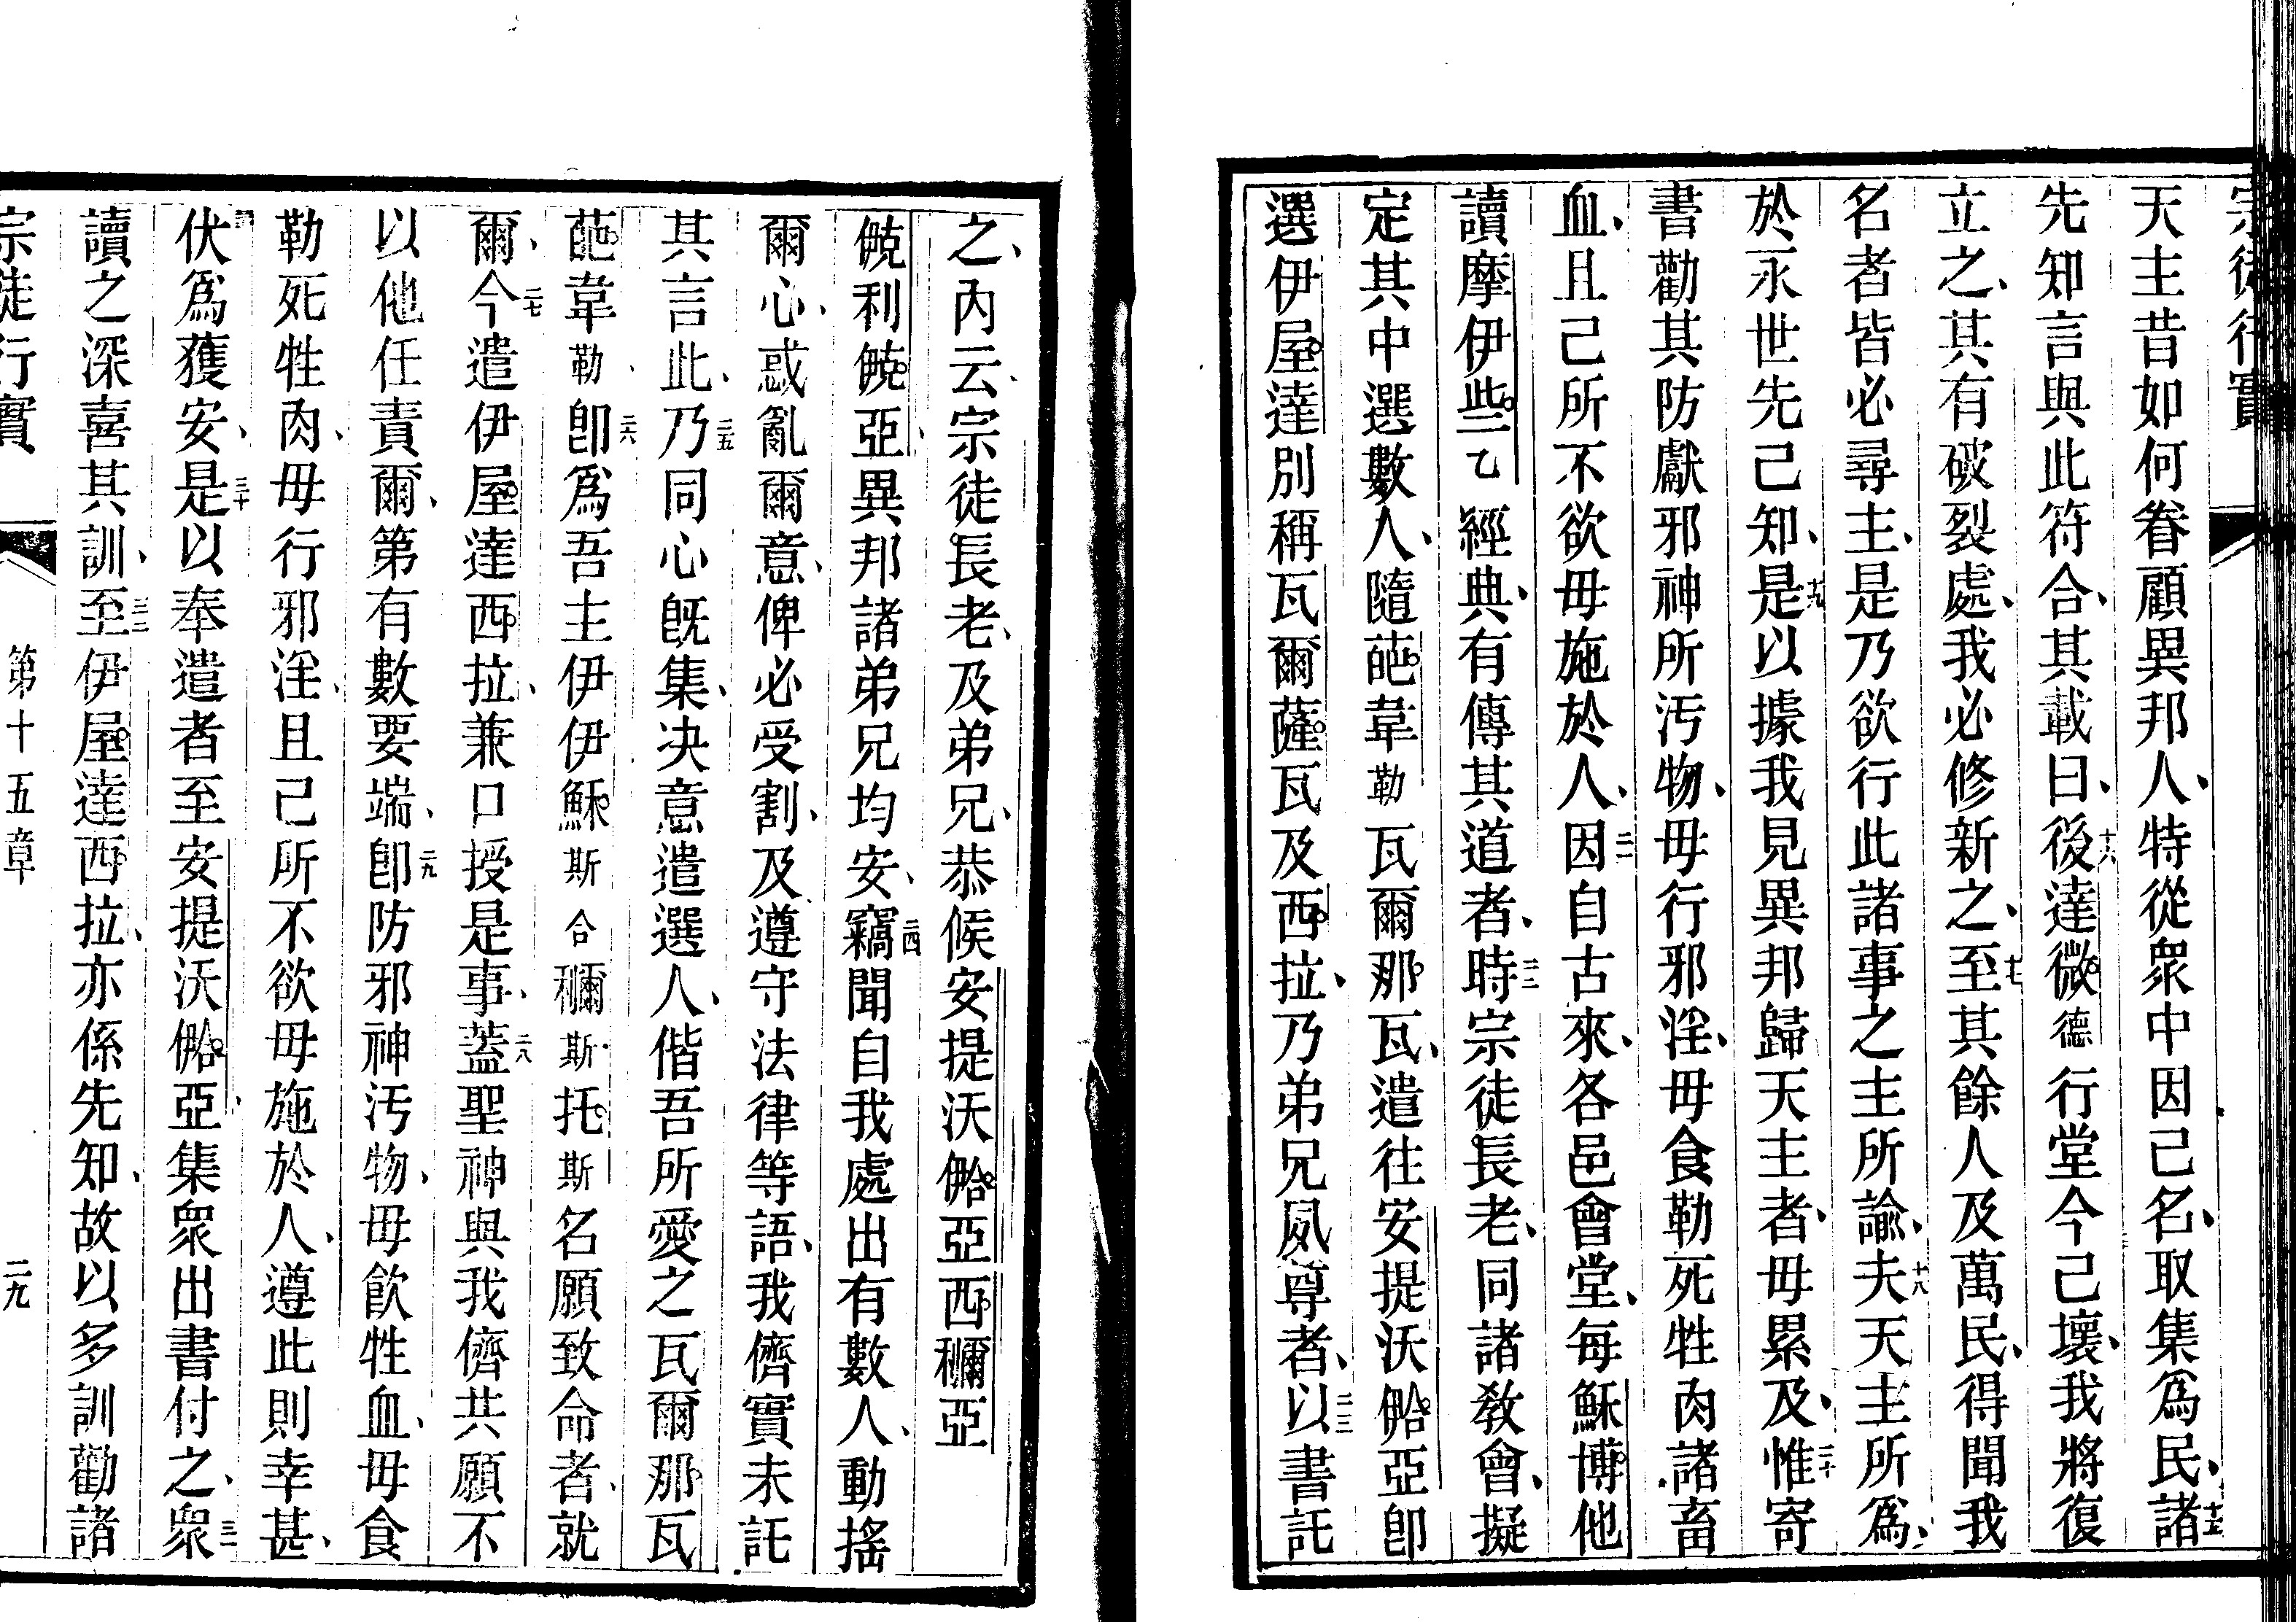 宗徒行實
天主昔如何眷顧異邦人、特從衆中因己名、取集爲民、諸十五
先知言與此符合、其載曰、後十六達微德行堂今已壞、我將復
立之、其有破裂處、我必修新之、至十七其餘人及萬民、得聞我
名者皆必尋主、是乃欲行此諸事之主所諭、夫十八天主所爲、
於永世先已知、是十九以據我見異邦歸天主者、毋累及、惟二十寄
書勸其防獻邪神所汚物、毋行邪淫、毋食勒死牲肉諸畜
血、且己所不欲毋施於人、因二一自古來、各邑會堂、每穌博他
讀摩伊些乙經典、有傳其道者、時二二宗徒長老、同諸教會、擬
定其中選數人、隨葩韋勒瓦爾那瓦、遣往安提沃亞卽
選伊屋達別稱瓦爾薩瓦及西拉、乃弟兄夙尊者、以二三書託
之、內云、宗徒長老、及弟兄、恭候安提沃亞西亞
利亞、異邦諸弟兄均安、竊二四聞自我處出有數人、動搖
爾心、惑亂爾意、俾必受割、及遵守法律等語、我儕實未託
其言此、乃二五同心既集、決意遣選人、偕吾所愛之瓦爾那瓦
葩韋勒、卽二六爲吾主伊伊穌斯合斯托斯名願致命者、就
爾、今二七遣伊屋達西拉、兼口授是事、蓋二八聖神與我儕共願不
以他任責爾、第有數要端、卽二九防邪神汚物、毋飮牲血、毋食
勒死牲肉、毋行邪淫、且己所不欲毋施於人、遵此則幸甚、
伏爲獲安、是三十以奉遣者至安提沃亞、集衆出書付之、衆三一
讀之深喜其訓、至三二伊屋達西拉、亦係先知、故以多訓勸諸
宗徒行實
第十五章
二九